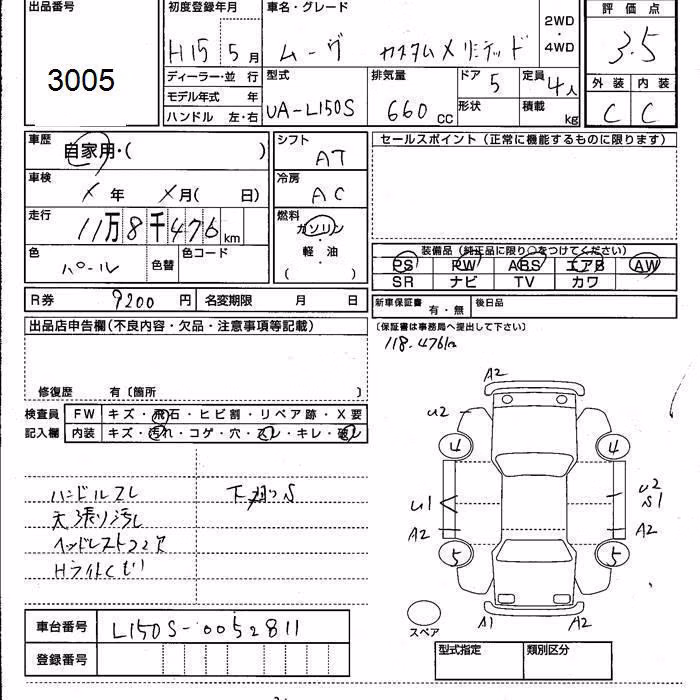 出品番号 初度登録年月 車名・グレード 2WD・4WD 評価点
3005 H15 5月 ムーヴ カスタムX リミテッド 3.5
ディーラー・並行 型式 排気量 ドア 定員 外装 内装
モデル年式 年 UA-L150S 660cc 5 4人 C C
ハンドル 左・右 形状 積載 kg
車歴 自家用・( ) シフト AT セールスポイント (正常に機能するものに限ります)
車検 X年 X月( 日) 冷房 AC
走行 11万8千476km 燃料 ガソリン・軽・油 ( )
色 パール 色替 色コード
装備品 (純正品に限り○をつけてください)
PS PW ABS エアB AW
SR ナビ TV カワ
R券 9200円 名変期限 月 日 新車保証書 有・無 後日品
出品店申告欄(不良内容・欠品・注意事項等記載) (保証書は事務局へ提出して下さい)
118.476km
修復歴 有〔箇所 〕
検査員 FW キズ・飛石・ヒビ割・リペア跡・X要
記入欄 内装 キズ・汚れ・コゲ・穴・スレ・キレ・破レ
A2
U2
4 4
ハンドルスレ
天張り汚れ
ヘッドレスト22穴
Hライトくもり
U1 U2 S1
A2 A2
5 5
A1 A2
スペア
車台番号 L150S-0052811
登録番号
型式指定 類別区分